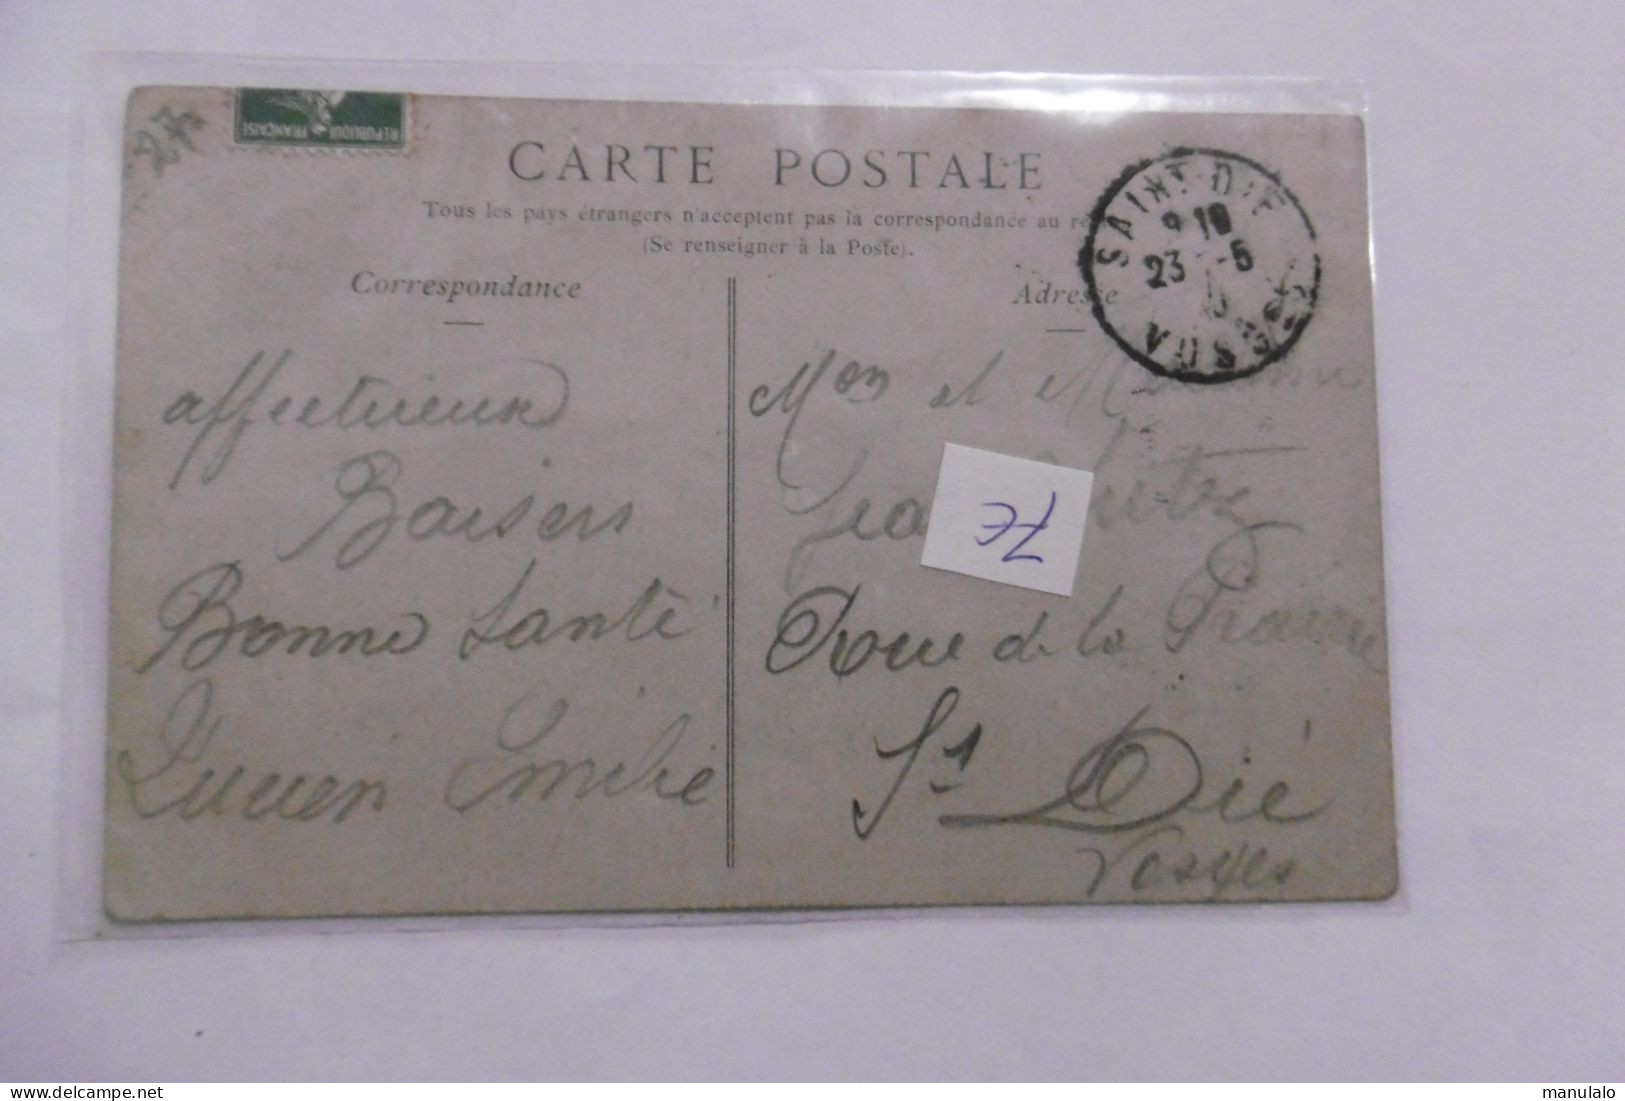 27
REPUBLIQUE FRANÇAISE
CARTE POSTALE
Tous les pays étrangers n'acceptent pas la correspondance au
(Se renseigner à la Poste).
Correspondance
Adresse
SAINT-DIÉ
23 -5
VOSGES
affectueux
Baisers
Bonne Santé
Lucien Emilie
Mon et
7€
Rue de la Prairie
St Dié
Vosges
manulalo